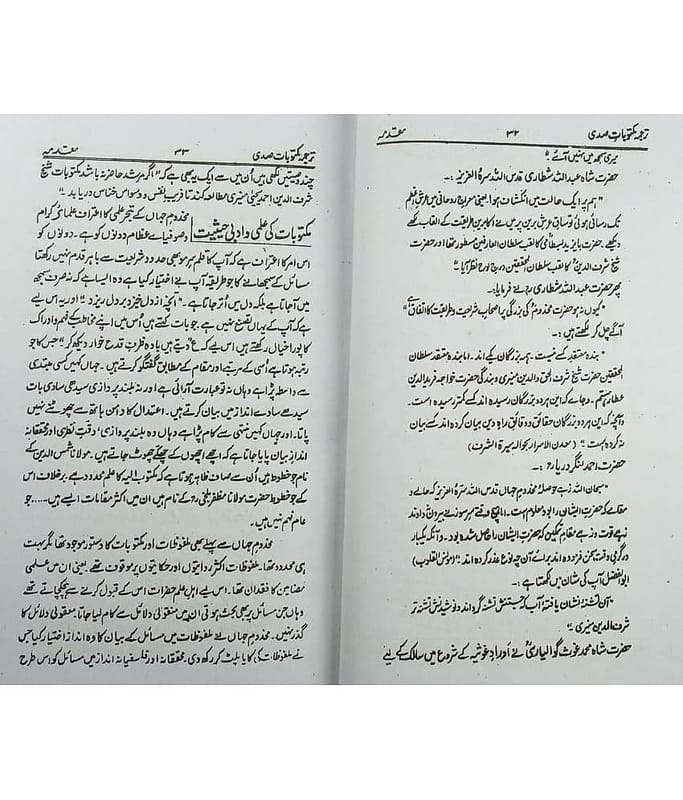 ترجمہ مکتوبات صدی ۳۲ مقدمہ
میری سمجھ میں نہیں آئے۔"
حضرت شاہ عبداللہ شطاری قدس اللہ سرہٗ العزیز :۔
"ہم پر ایک حالت میں انکشاف ہوا، یعنی معراجِ روحانی میں عرشِ عظیم
تک رسائی ہوئی تو ساقیِ عرش بریں پر میں نے اکابرینِ طریقت کے القاب لکھے
دیکھے۔ حضرت بایزید بسطامیؒ کا لقب سلطان العارفین مسطور تھا، اور حضرت
شیخ شرف الدینؒ کا لقب سلطان المحققین درج لوح نظر آیا۔"
پھر حضرت عبداللہ شطاری نے فرمایا:۔
"کیوں نہ ہو حضرت مخدومؒ کی بزرگی پر اصحابِ شریعت و طریقت کا اتفاق ہے"
آگے چل کر لکھتے ہیں :۔
"بندہ معتقد کے نیست۔ ہمہ بزرگان یکے اند۔ اما بندہ معتقد سلطان
المحققین حضرت شیخ شرف الحق والدین منیری و بندگی حضرت خواجہ فرید الدین
عطار ہستم۔ و جائے کہ این ہر دو بزرگان رسیدہ اند کے کمتر رسیدہ است۔
و آنچہ کہ این ہر دو بزرگان حقائق و دقائق راہِ دین بیان کردہ اند کسے بیان
نہ کردہ است۔" (معدن الاسرار بحوالہ سیرۃ الشرف)
حضرت احمد لنگر دریا رح :۔
"سبحان اللہ زہے حوصلہ مخدوم جہاں قدس اللہ سرہٗ العزیز کہ حالے و
مقامے کہ حضرت ایشان را بود معلوم است۔ اما ہیچ وقتے سر موئے بیرون ندادند
زہے قوت و زہے مقامِ تمکین کہ حضرت ایشان را حاصل شدہ بود۔ و آنکہ یکبار
در گرمی وقت سخن فرمودہ اند برائے آں چہ نوع عذر کردہ اند" (مونس القلوب)
ابوالفضل آپ کی شان میں لکھتا ہے :۔
شرف الدین منیری۔"
حضرت شاہ محمد غوث گوالیاریؒ نے اورادِ غوثیہ کے شروع میں سالک کے لیے
ترجمہ مکتوبات صدی ۳۳ مقدمہ
چند وصیتیں لکھی ہیں اُن میں سے ایک یہ بھی ہے کہ "اگر مرشد حاضر نہ باشد مکتوبات شیخ
شرف الدین احمد یحییٰ منیری مطالعہ کند تا فریبِ نفس و وسواسِ خناس دریابد۔"
مکتوبات کی علمی و ادبی حیثیت
مخدوم جہاں کے تبحرِ علمی کا اعتراف علمائے کرام
و صوفیائے عظام دونوں کو ہے۔ دونوں کو
اس امر کا اعتراف ہے کہ آپ کا قلم سرِ مو بھی حدود شریعت سے باہر قدم نہیں رکھتا
مسائل کے سمجھانے کا جو طریقہ آپ نے اختیار کیا ہے وہ ایسا ہے کہ نہ صرف سمجھ
میں آ جاتا ہے بلکہ دل میں اُتر جاتا ہے۔ "آنچہ از دل خیزد بر دل ریزد" اور یہ اس لیے
ہے کہ آپ کے یہاں تصنع نہیں ہے۔ جو بات کہتے ہیں اُس میں اپنے مخاطب کے فہم و ادراک
کا پورا خیال رکھتے ہیں اس لیے کہ ع "دیتے ہیں بادہ ظرفِ قدح خوار دیکھ کر" جس کا جو
رتبہ ہوتا ہے اُسی کے مرتبے اور مقام کے مطابق گفتگو کرتے ہیں۔ جہاں کہیں کسی مبتدی
سے واسطہ پڑا ہے وہاں نہ تو عبارت آرائی ہے اور نہ بلند پروازی سیدھی سادی بات
سیدھے سادے انداز میں بیان کرتے ہیں۔ اعتدال کا دامن ہاتھ سے چھوٹنے نہیں
پاتا۔ اور جہاں کہیں منتہی سے کام پڑا ہے وہاں وہ بلند پروازی، دقت نظری اور محققانہ
اندازِ بیان پایا جاتا ہے کہ اچھے اچھوں کے چھکے چھوٹ جاتے ہیں۔ مولانا شمس الدین کے
نام جو خطوط ہیں اُن سے صاف ظاہر ہوتا ہے کہ مکتوب الیہ کا علم محدود ہے برخلاف اس
کے جو خطوط حضرت مولانا مظفر بلخی رح کے نام ہیں ان میں اکثر مقامات ایسے ہیں......جو
عام فہم نہیں ہیں۔
مخدوم جہاں سے پہلے بھی ملفوظات اور مکتوبات کا دستور موجود تھا مگر بہت
ہی محدود تھا۔ ملفوظات اکثر روایتوں اور حکایتوں پر موقوف تھے۔ یعنی ان میں علمی
مضامین کا فقدان تھا۔ اس لیے اہلِ علم حضرات اس کے قبول کرنے سے ہچکچاتے تھے
وہاں جن مسائل پر بھی بحث ہوتی اُن میں منقولی دلائل سے کام لیا جاتا۔ معقولی دلائل کا
گذر نہیں۔ مخدوم جہاں نے ملفوظات میں مسائل کے بیان کا وہ انداز اختیار کیا جس
نے ملفوظات کی کایا پلٹ کر رکھ دی۔ محققانہ اور فلسفیانہ انداز میں مسائل کو اس طرح